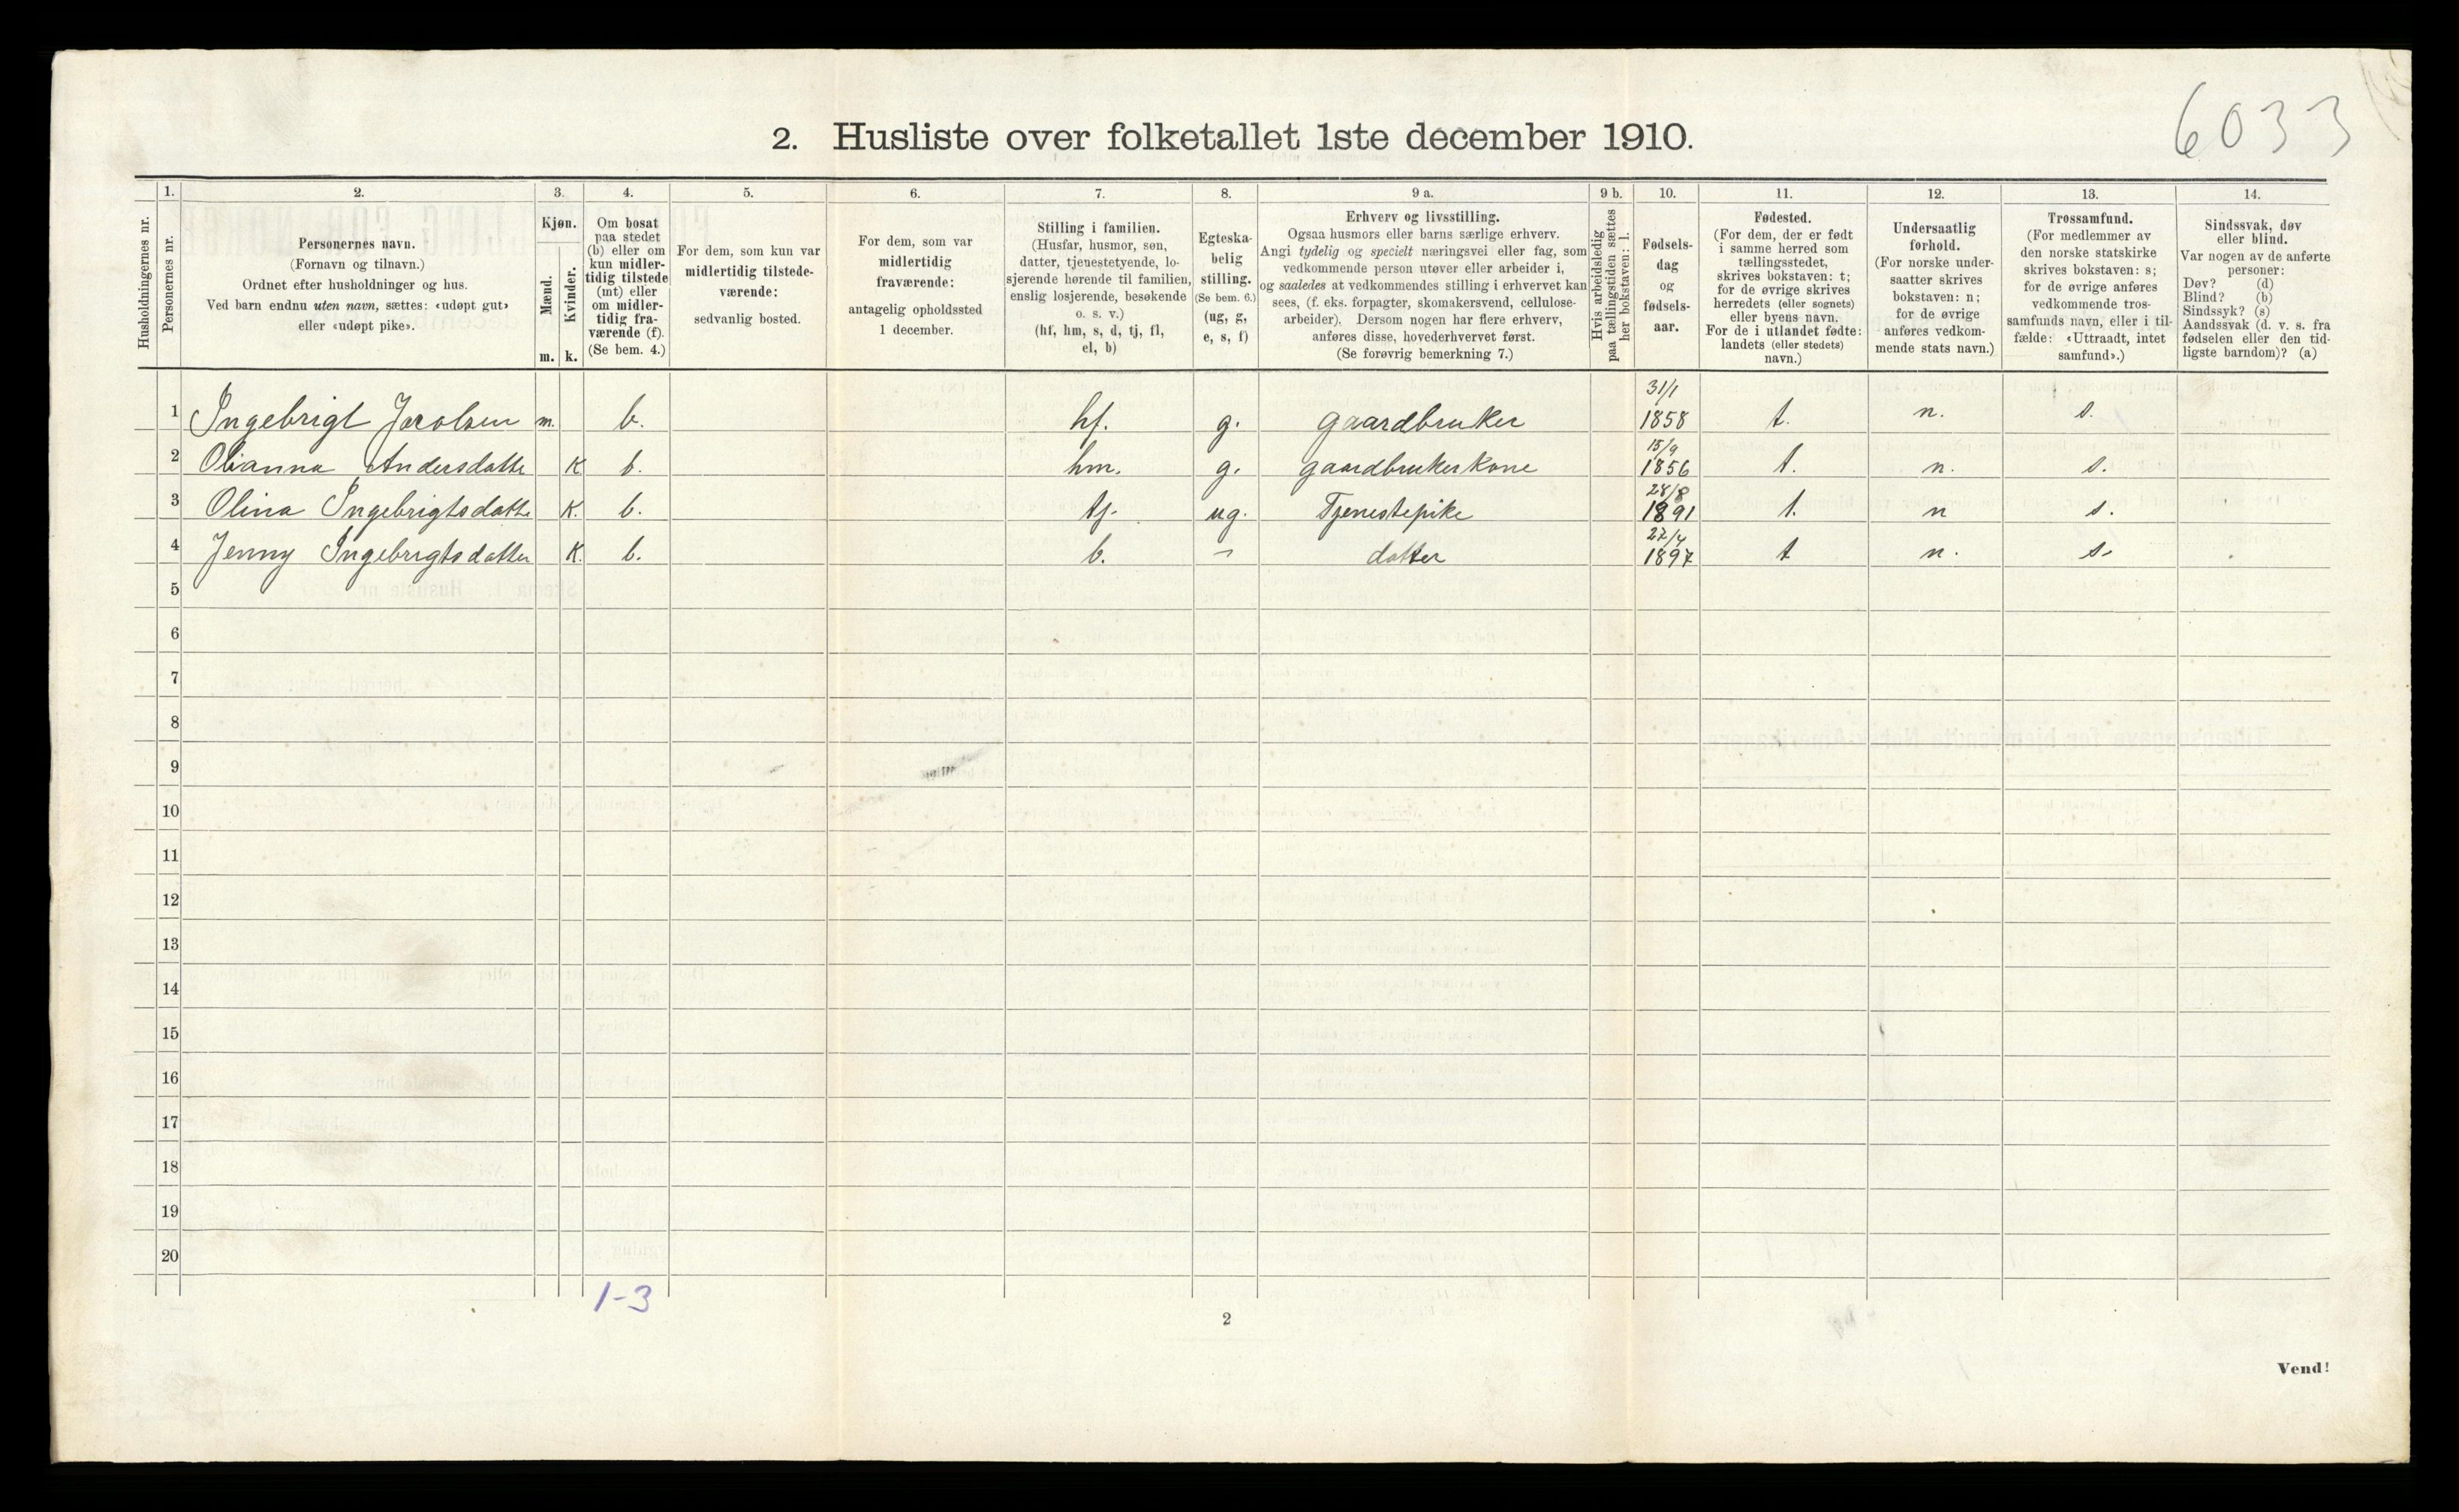 6033
2. Husliste over folketallet 1ste december 1910.
Husholdningernes nr.
1.
Personernes nr.
2.
Personernes navn.
(Fornavn og tilnavn.)
Ordnet efter husholdninger og hus.
Ved barn endnu uten navn, sættes: «udøpt gut»
eller «udøpt pike».
3.
Kjøn.
Mænd.
Kvinder.
m.
k.
4.
Om bosat
paa stedet
(b) eller om
kun midler-
tidig tilstede
(mt) eller
om midler-
tidig fra-
værende (f).
(Se bem. 4.)
5.
For dem, som kun var
midlertidig tilstede-
værende:
sedvanlig bosted.
6.
For dem, som var
midlertidig
fraværende:
antagelig opholdssted
1 december.
7.
Stilling i familien.
(Husfar, husmor, søn,
datter, tjenestetyende, lo-
sjerende hørende til familien,
enslig losjerende, besøkende
o. s. v.)
(hf, hm, s, d, tj, fl,
el, b)
8.
Egteska-
belig
stilling.
(Se bem. 6.)
(ug, g,
e, s, f)
9 a.
Erhverv og livsstilling.
Ogsaa husmors eller barns særlige erhverv.
Angi tydelig og specielt næringsvei eller fag, som
vedkommende person utøver eller arbeider i,
og saaledes at vedkommendes stilling i erhvervet kan
sees, (f. eks. forpagter, skomakersvend, cellulose-
arbeider). Dersom nogen har flere erhverv,
anføres disse, hovederhvervet først.
(Se forøvrig bemerkning 7.)
9 b.
Hvis arbeidsledig
paa tællingstiden sættes
her bokstaven: l.
10.
Fødsels-
dag
og
fødsels-
aar.
11.
Fødested.
(For dem, der er født
i samme herred som
tællingsstedet,
skrives bokstaven: t;
for de øvrige skrives
herredets (eller sognets)
eller byens navn.
For de i utlandet fødte:
landets (eller stedets)
navn.)
12.
Undersaatlig
forhold.
(For norske under-
saatter skrives
bokstaven: n;
for de øvrige
anføres vedkom-
mende stats navn.)
13.
Trossamfund.
(For medlemmer av
den norske statskirke
skrives bokstaven: s;
for de øvrige anføres
vedkommende tros-
samfunds navn, eller i til-
fælde: «Uttraadt, intet
samfund».)
14.
Sindssvak, døv
eller blind.
Var nogen av de anførte
personer:
Døv? (d)
Blind? (b)
Sindssyk? (s)
Aandssvak (d. v. s. fra
fødselen eller den tid-
ligste barndom)? (a)
1 Ingebrigt Jacobsen m. b. hf. g. gaardbruker 31/1 1858 t. n. s.
2 Olianna Andersdatte K b. hm. g. gaardbrukerkone 15/9 1856 t. n. s.
3 Olina Ingebrigtsdatte K. b. tj. ug. Tjenestepike 28/8 1891 t. n s.
4 Jenny Ingebrigtsdatter K. b. b. - datter 22/4 1897 t n. s.
5
6
7
8
9
10
11
12
13
14
15
16
17
18
19
20
1-3
2
Vend!